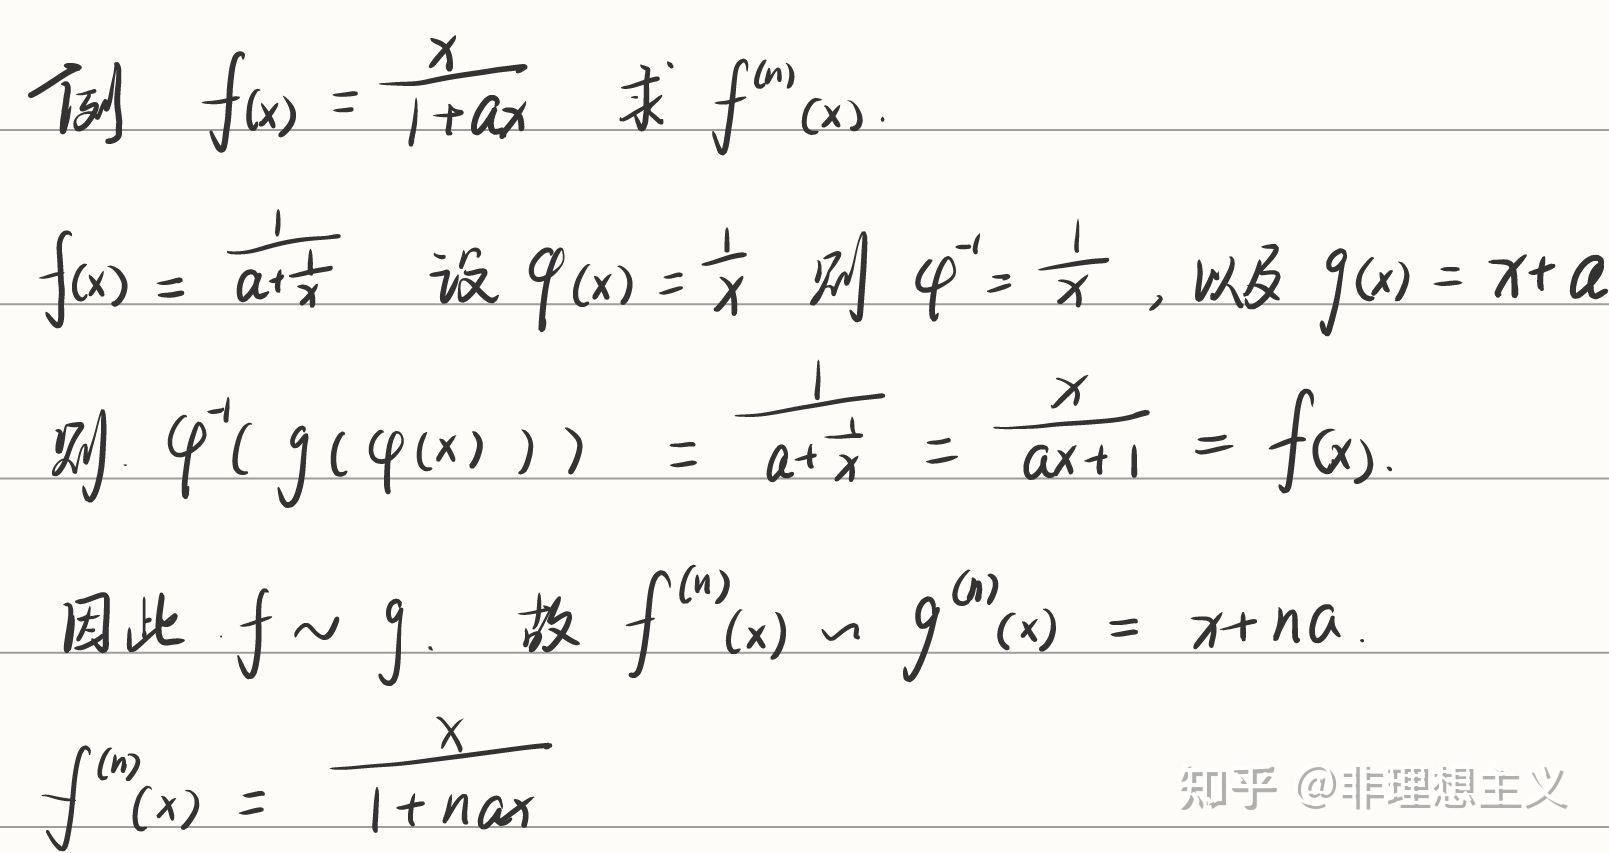 例 f(x) = x/(1+ax) 求 f^(n)(x).
f(x) = 1/(a+1/x) 设 φ(x) = 1/x 则 φ^-1 = 1/x , 以及 g(x) = x+a
则. φ^-1(g(φ(x))) = 1/(a+1/x) = x/(ax+1) = f(x).
因此 f~g. 故 f^(n)(x) ~ g^(n)(x) = x+na.
f^(n)(x) = x/(1+nax)
知乎 @非理想主义